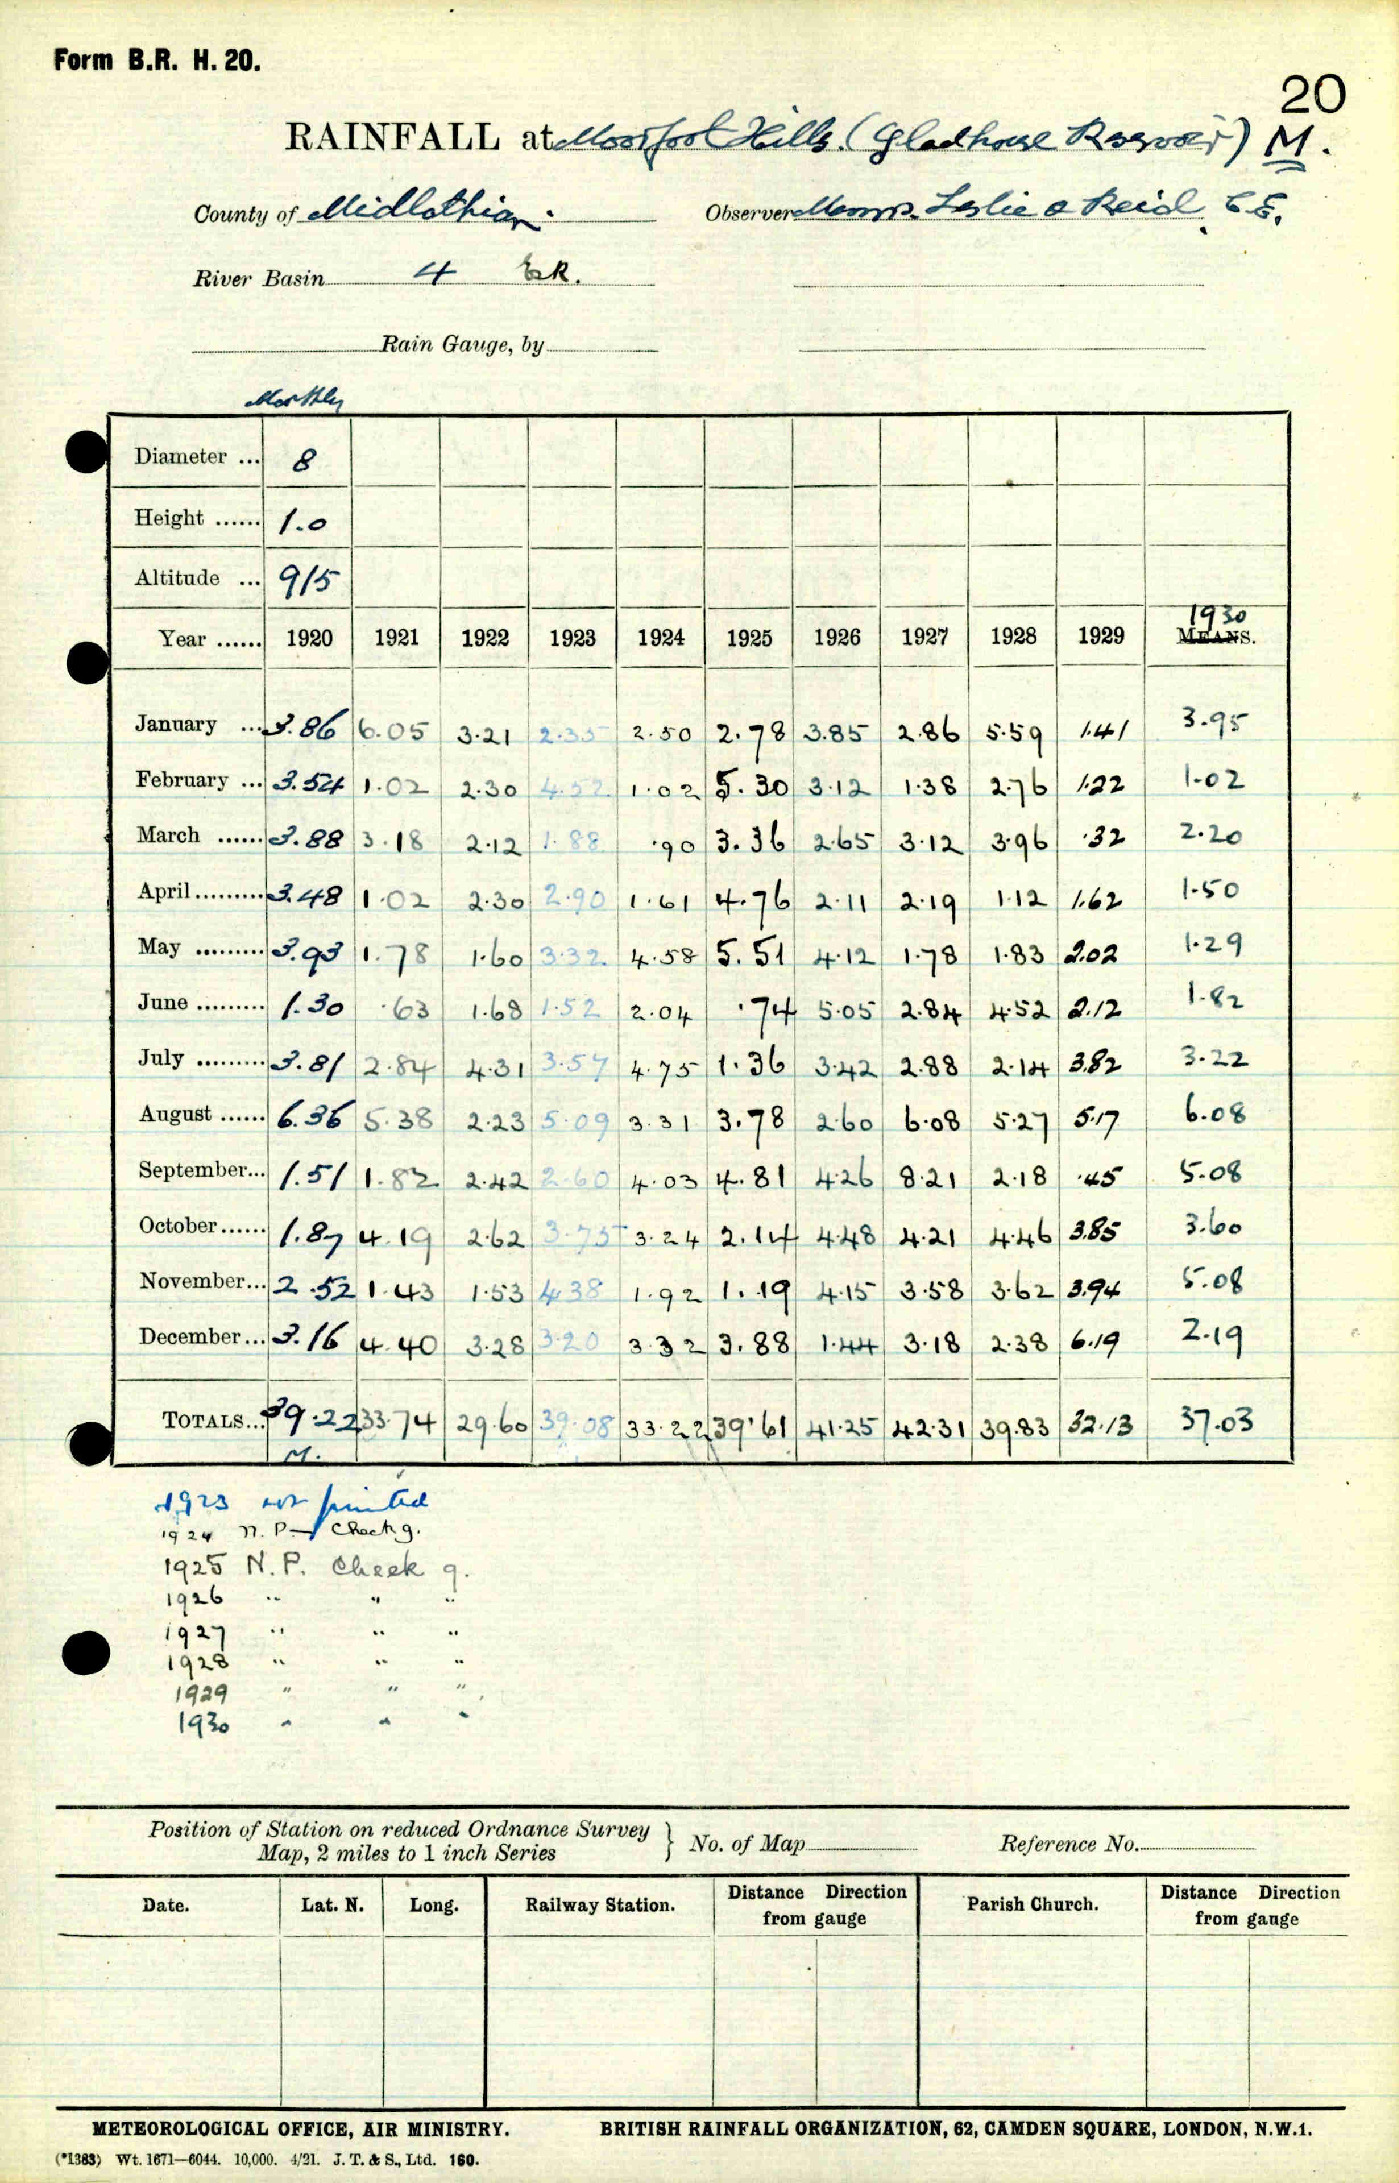 Form B.R. H. 20.
20
RAINFALL at Moorfoot Hills. (Gladhouse Resvoir) M.
County of Midlothian. Observer Messrs. Leslie & Reid, C.E.
River Basin 4 Esk.
Rain Gauge, by
Monthly
Diameter ... 8
Height ...... 1.0
Altitude ... 915
1930
Year ...... 1920 1921 1922 1923 1924 1925 1926 1927 1928 1929 MEANS.
January ... 3.86 6.05 3.21 2.35 2.50 2.78 3.85 2.86 5.59 1.41 3.95
February ... 3.54 1.02 2.30 4.52 1.02 5.30 3.12 1.38 2.76 1.22 1.02
March ...... 3.88 3.18 2.12 1.88 .90 3.36 2.65 3.12 3.96 .32 2.20
April ......... 3.48 1.02 2.30 2.90 1.61 4.76 2.11 2.19 1.12 1.62 1.50
May ......... 3.93 1.78 1.60 3.32 4.58 5.51 4.12 1.78 1.83 2.02 1.29
June ......... 1.30 .63 1.68 1.52 2.04 .74 5.05 2.84 4.52 2.12 1.82
July ......... 3.81 2.84 4.31 3.57 4.75 1.36 3.42 2.88 2.14 3.82 3.22
August ...... 6.36 5.38 2.23 5.09 3.31 3.78 2.60 6.08 5.27 5.17 6.08
September... 1.51 1.82 2.42 2.60 4.03 4.81 4.26 8.21 2.18 .45 5.08
October...... 1.87 4.19 2.62 3.75 3.24 2.14 4.48 4.21 4.46 3.85 3.60
November... 2.52 1.43 1.53 4.38 1.92 1.19 4.15 3.58 3.62 3.94 5.08
December... 3.16 4.40 3.28 3.20 3.32 3.88 1.44 3.18 2.38 6.19 2.19
TOTALS... 39.22 33.74 29.60 39.08 33.22 39.61 41.25 42.31 39.83 32.13 37.03
M.
1923 not printed
1924 N.P. Check g.
1925 N.P. Check g.
1926 " " "
1927 " " "
1928 " " "
1929 " " "
1930 " " "
Position of Station on reduced Ordnance Survey
Map, 2 miles to 1 inch Series } No. of Map Reference No.
Date. Lat. N. Long. Railway Station. Distance Direction from gauge Parish Church. Distance Direction from gauge
METEOROLOGICAL OFFICE, AIR MINISTRY. BRITISH RAINFALL ORGANIZATION, 62, CAMDEN SQUARE, LONDON, N.W.1.
(*1383) Wt. 1671—6044. 10,000. 4/21. J. T. & S., Ltd. 160.